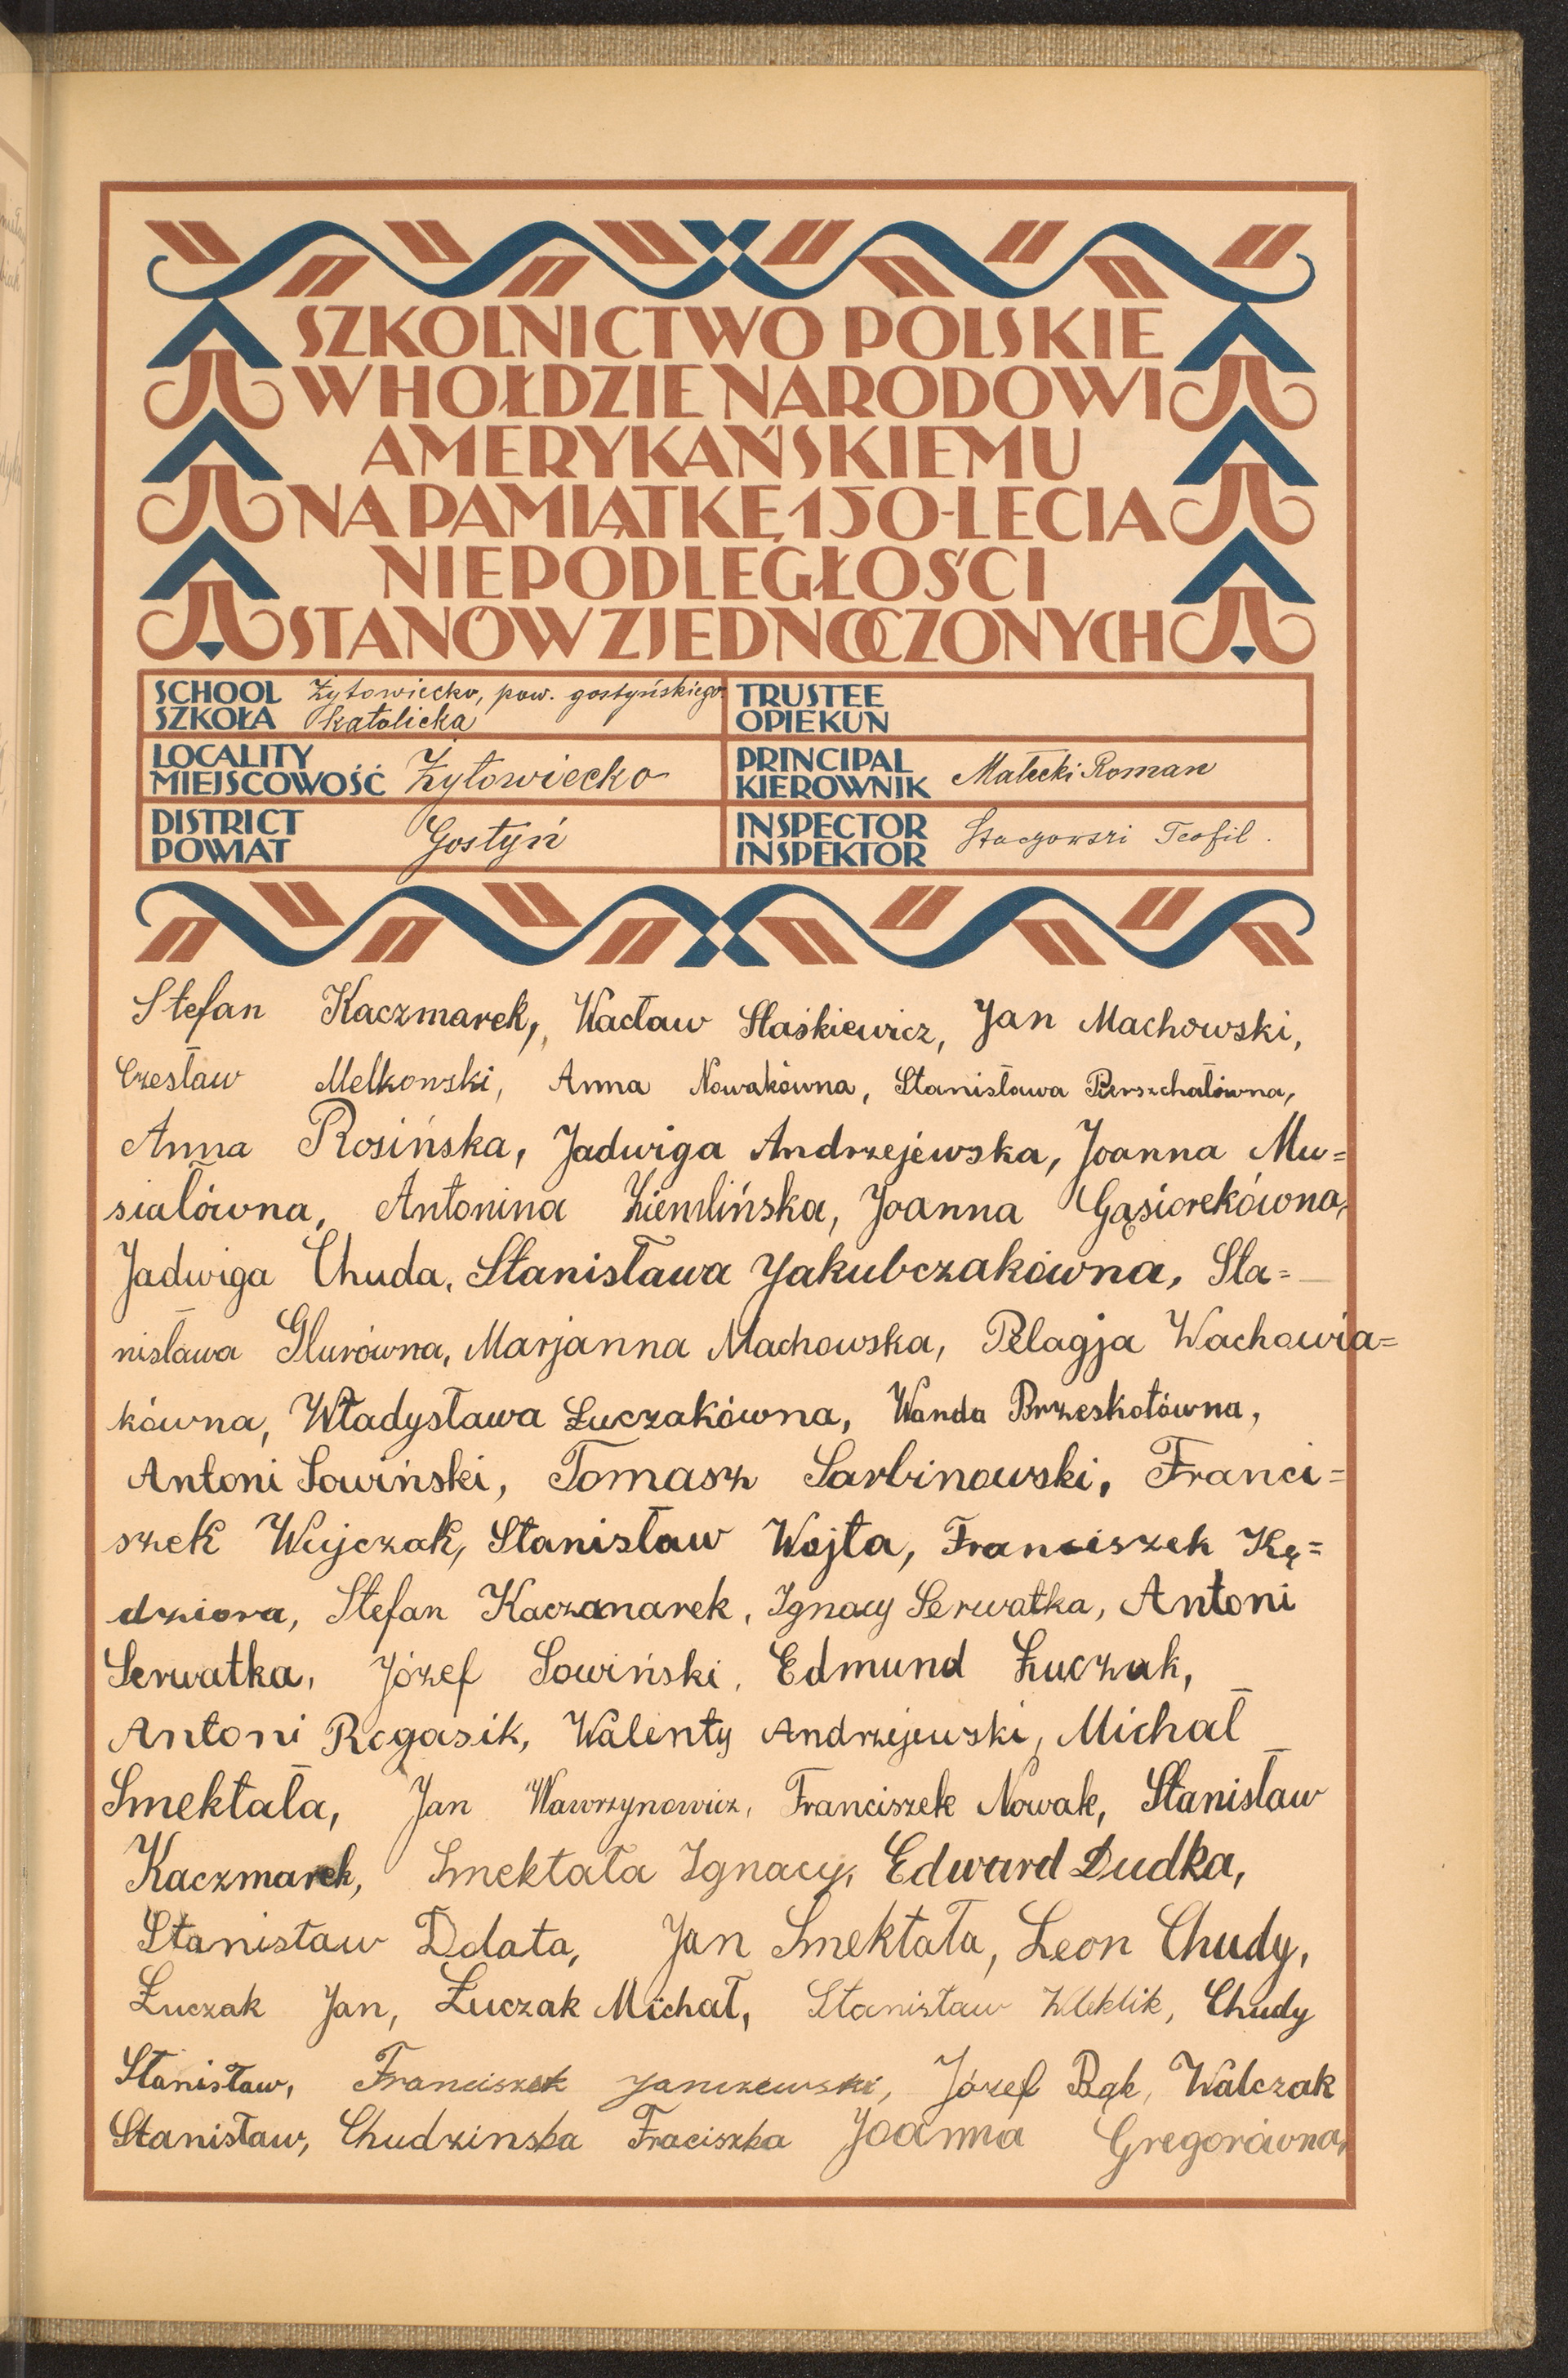 SZKOLNICTWO POLSKIE
W HOŁDZIE NARODOWI
AMERYKAŃSKIEMU
NA PAMIĄTKĘ 150-LECIA
NIEPODLEGŁOŚCI
STANÓW ZJEDNOCZONYCH
SCHOOL Żytowiecko, pow. gostyńskiego
SZKOŁA katolicka
TRUSTEE
OPIEKUN
LOCALITY
MIEJSCOWOŚĆ Żytowiecko
PRINCIPAL
KIEROWNIK Małecki Roman
DISTRICT
POWIAT Gostyń
INSPECTOR
INSPEKTOR Teofil.
Stefan Kaczmarek, Wacław Słaśkiewicz, Jan Machowski,
Czesław Melkowski, Anna Nowakówna, Stanisława
Anna Rosińska, Jadwiga Andrzejewska, Joanna Mu=
siałówna, Antonina Ziemlińska, Joanna Gąsiorekówna,
Jadwiga Chuda, Stanisława Jakubczakówna, Sta=
nisława Glurówna, Marjanna Machowska, Pelagja Wachowia=
kówna, Władysława Łuczakówna, Wanda Brzeskotówna,
Antoni Sowiński, Tomasz Sarbinowski, Franci=
szek Wujczak, Stanisław Wojta, Franciszek Kę=
dziora, Stefan Kaczmarek, Ignacy Serwatka, Antoni
Serwatka, Józef Sowiński, Edmund Łuczak,
Antoni Rogasik, Walenty Andrzejewski, Michał
Smektała, Jan Wawrzynowicz, Franciszek Nowak, Stanisław
Kaczmarek, Smektała Ignacy, Edward Dudka,
Stanisław Jan Smektała, Leon Chudy,
Łuczak Jan, Łuczak Michał, Stanisław Chudy
Stanisław, Franciszek Janczewski, Józef Bąk, Walczak
Stanisław, Chudzinska Fraciszka Joanna Gregorówna,